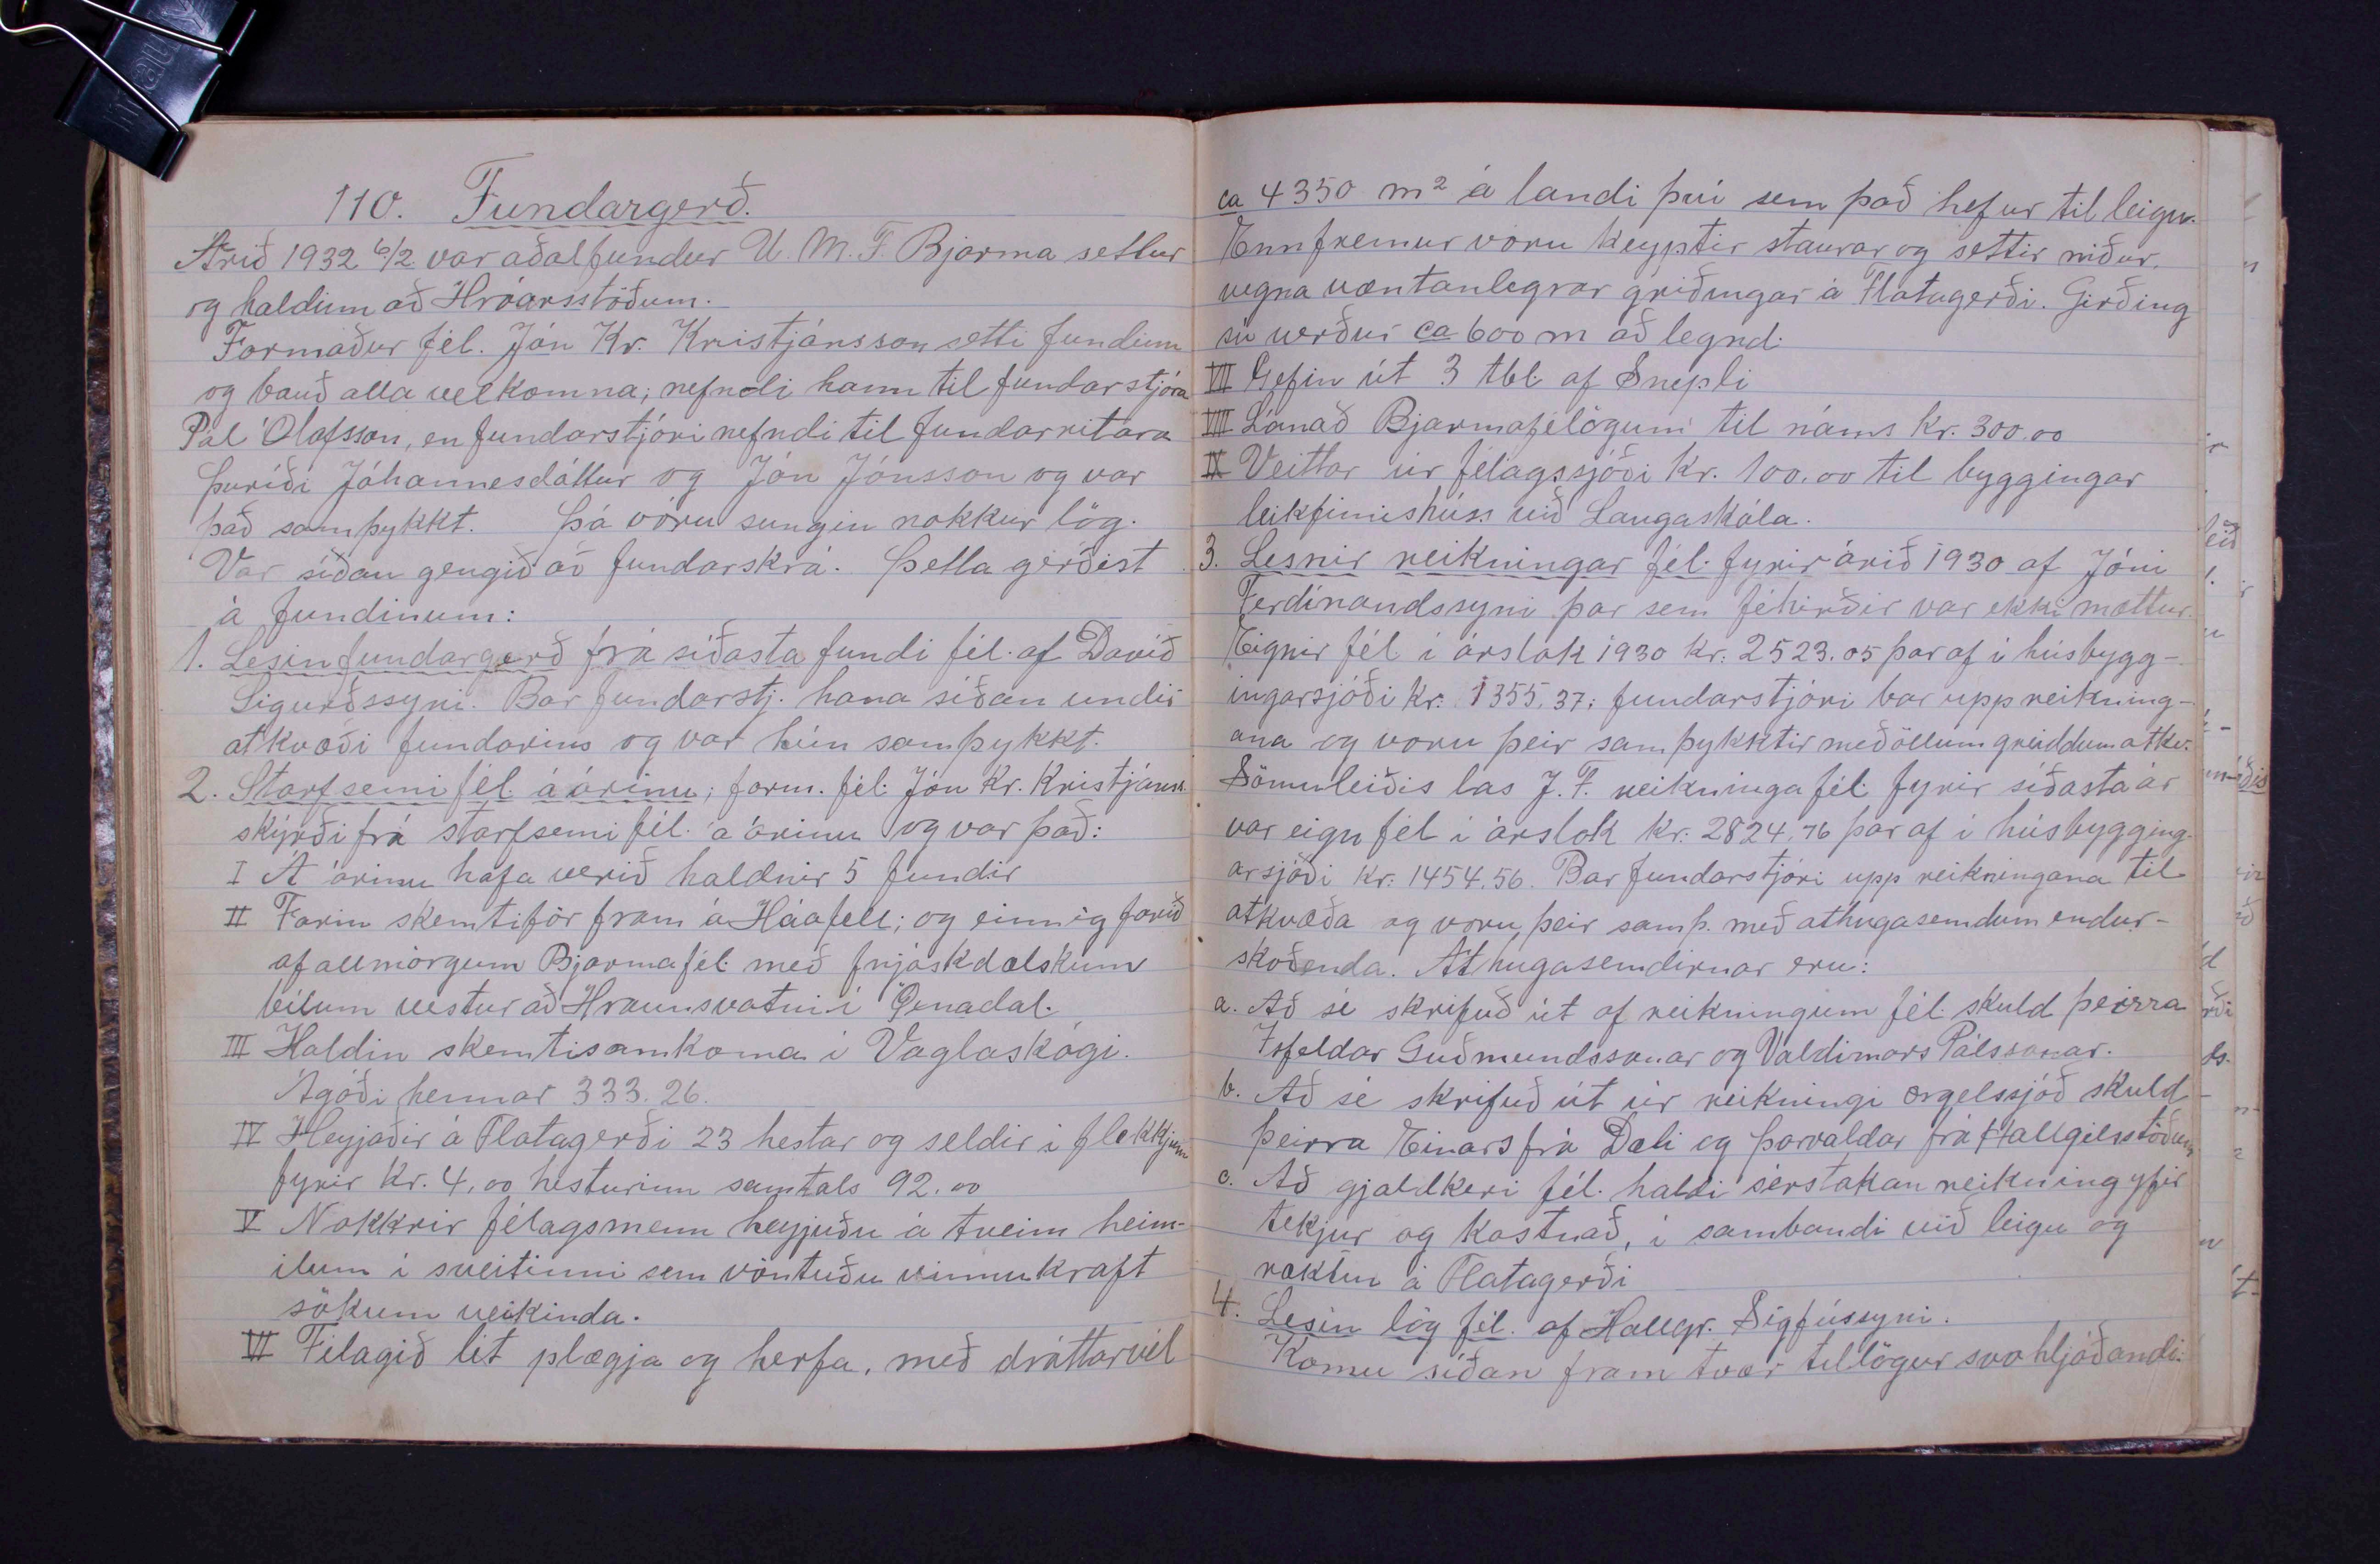 110. Fundargerð.
Árið 1932 6/2 var aðalfundur U. M. F. Bjarma settur
og haldinn að Hróarsstöðum.
Formaður fél. Jón Kr. Kristjánsson setti fundinn
og bauð alla velkomna; nefndi hann til fundarstjóra
Pál Ólafsson, en fundarstjóri nefndi til fundarritara
Þuríði Jóhannesdóttur og Jón Jónsson og var
það samþykkt. Þá vóru sungin nokkur lög.
Var síðan gengið að fundarskrá. Þetta gerðist
á fundinum:
1. Lesin fundargerð frá síðasta fundi fél. af Davíð
Sigurðssyni. Bar fundarstj. hana síðan undir
atkvæði fundarins og var hún samþykkt.
2. Starfsemi fél. á árinu; form. fél. Jón Kr. Kristjánss.
skýrði frá starfsemi fél. á árinu og var það:
I Á árinu hafa verið haldnir 5 fundir
II Farin skemtiför fram á Háafell; og einnig farið
af allmörgum Bjarmafél. með fnjóskdælskum
bílum vestur að Hraunsvatni í Öxnadal.
III Haldin skemtisamkoma í Vaglaskógi.
Ágóði hennar 333.26.
IV Heyjaðir á Flatagerði 23 hestar og seldir í flekkjum
fyrir kr. 4,00 hesturinn samtals 92.00
V Nokkrir félagsmenn heyjuðu á tveim heim-
ilum í sveitinni sem vöntuðu vinnukraft
sökum veikinda.
VI Félagið lét plægja og herfa, með dráttarvél
ca 4350 m² á landi því sem það hefur til leigu.
Ennfremur voru keyptir staurar og settir niður,
vegna væntanlegrar griðingar á Flatagerði. Girðing
sú verður ca 600 m að legnd.
VII Gefin út 3 tbl. af Snepli
VIII Lánað Bjarmafélögum til náms kr. 300.00
IX Veittar úr félagssjóði kr. 100.00 til byggingar
leikfimishúss við Laugaskóla.
3. Lesnir reikningar fél. fyrir árið 1930 af Jóni
Ferdínandssyni þar sem féhirðir var ekki mættur.
Eignir fél í árslok 1930 kr. 2523.05 þar af í húsbygg-
ingarsjóði kr. 1355.37; fundarstjóri bar upp reikning-
ana og voru þeir samþykktir með öllum greiddum atkv.
Sömuleiðis las J. F. reikninga fél. fyrir síðasta ár
var eign fél í árslok kr. 2824,76 þar af í húsbygging-
arsjóði kr. 1454.56. Bar fundarstjóri upp reikningana til
atkvæða og voru þeir samþ. með athugasemdum endur-
skoðenda. Athugasemdirnar eru:
a. Að sé skrifuð út af reikningum fél. skuld þeirra
Ísfeldar Guðmundssonar og Valdimars Pálssonar.
b. Að sé skrifuð út úr reikningi orgelssjóð skuld
þeirra Einars frá Dæli og Þorvaldar frá Hallgilsstöðum
c. Að gjaldkeri fél. haldi sérstakan reikning yfir
tekjur og kostnað, í sambandi við leigu og
ræktun á Flatagerði
4. Lesin lög fél. af Hallgr. Sigfússyni.
Komu síðan fram tvær tillögur svohljóðandi: